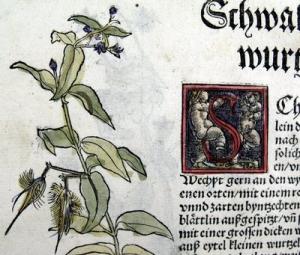 Schwa
wurt
S Ch
lein d
nach
solich
en/vn
Wechßt gern an den wy
enen orten/ mit einem
vnnd zarten byntzechten
blättlin außgespitzt/vn
mit einer grossen dicken w
auß eytel kleinen wurtzel